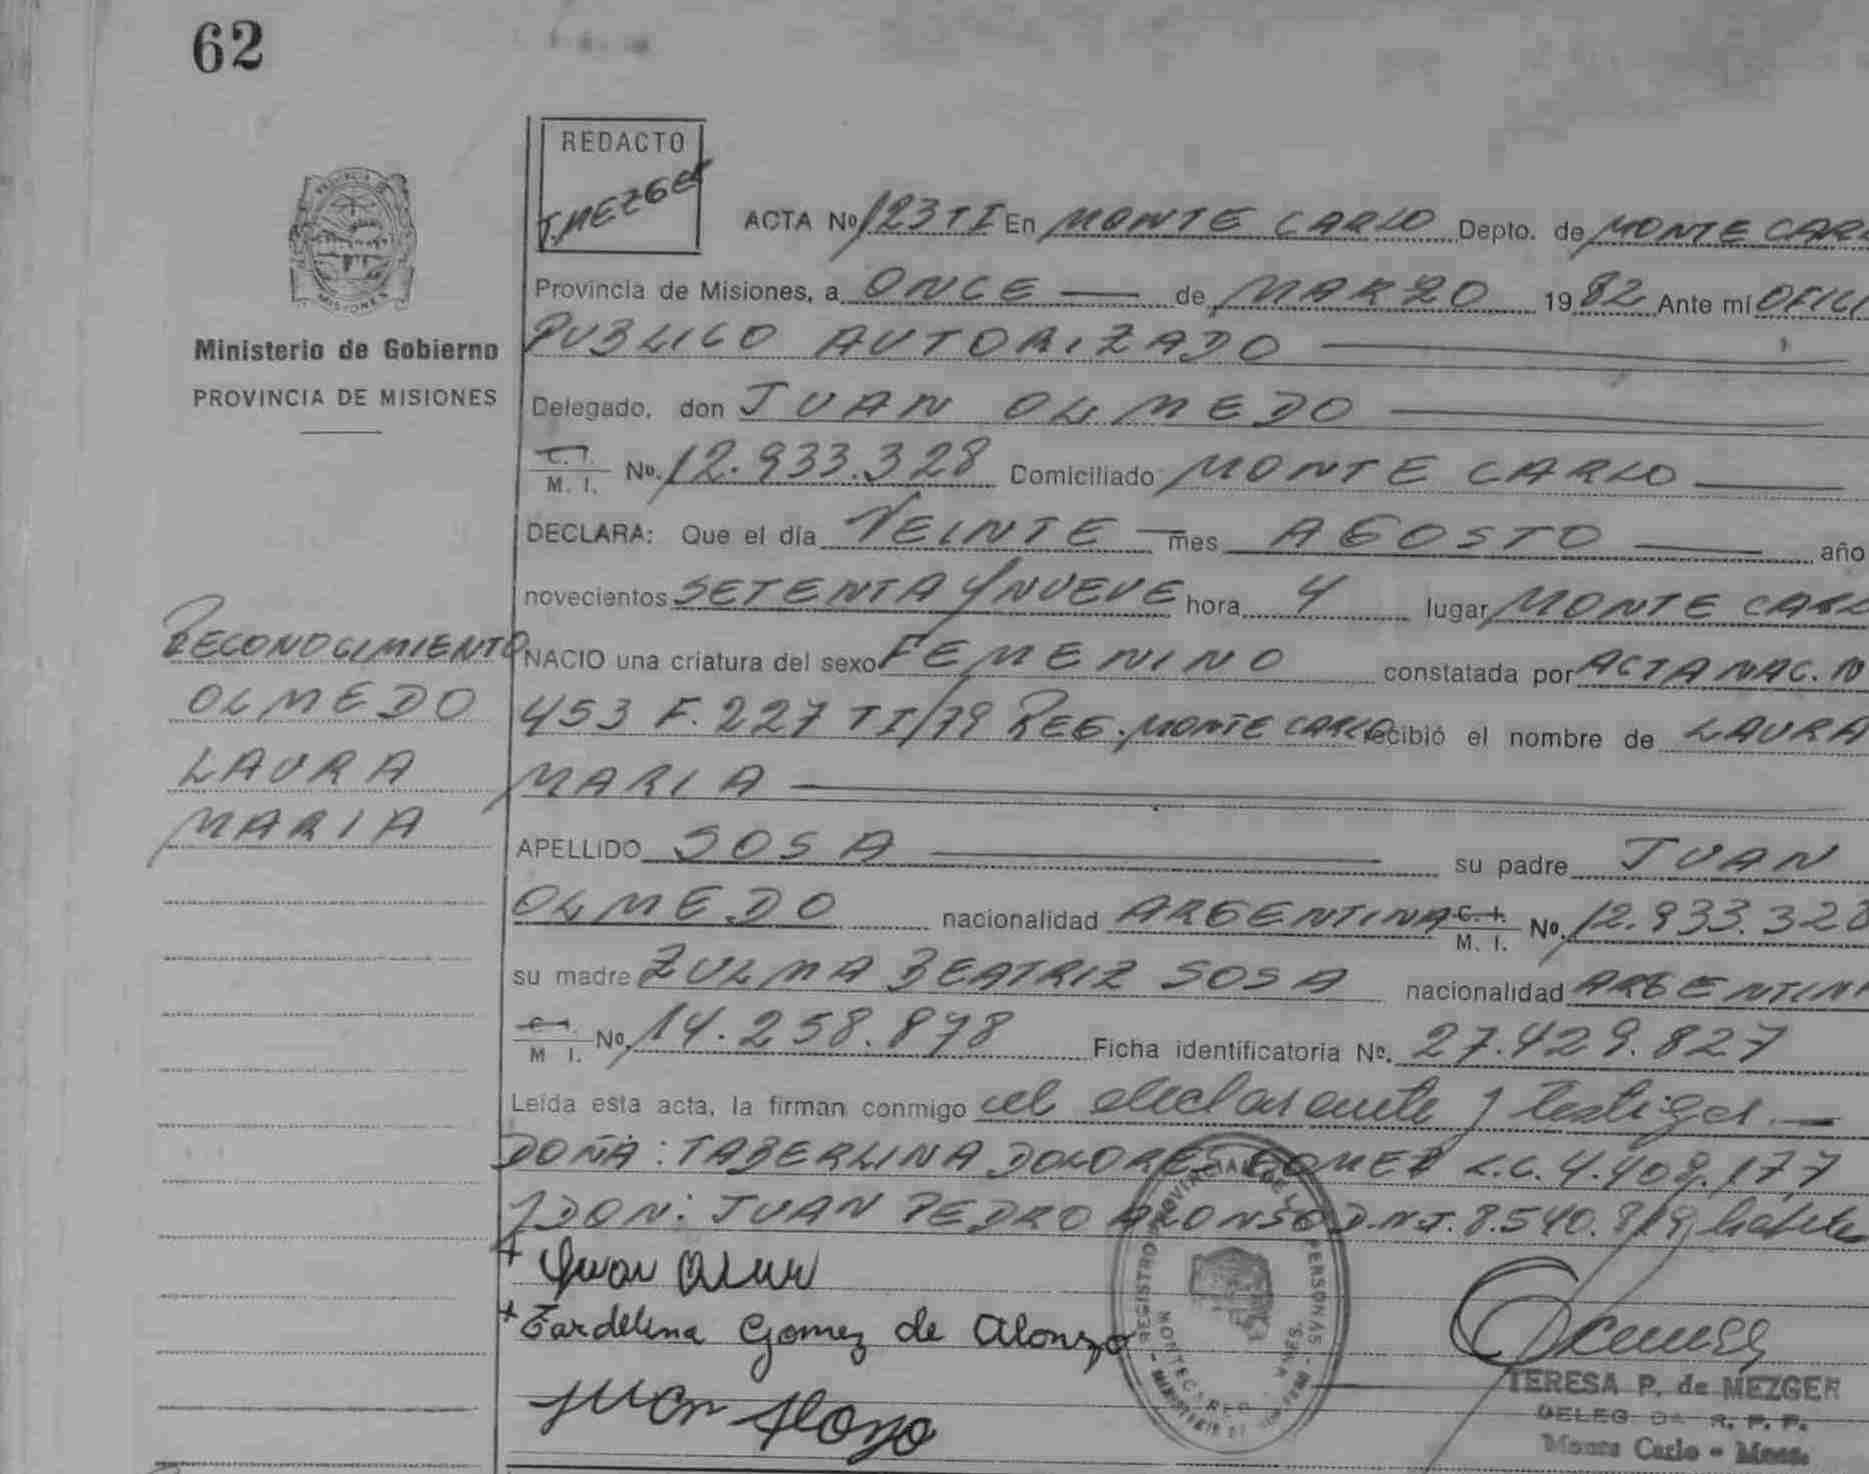 62
REDACTO
T. MEZGER
ACTA Nº 123 TI En MONTE CARLO Depto. de MONTE CARL
Provincia de Misiones, a ONCE de MARZO 1982 Ante mi OFICI
PUBLICO AUTORIZADO
Ministerio de Gobierno
PROVINCIA DE MISIONES
Delegado, don JUAN OLMEDO
C. I. M. I. Nº. 12.933.328 Domiciliado MONTE CARLO
DECLARA: Que el día VEINTE mes AGOSTO año
novecientos SETENTA Y NUEVE hora 4 lugar MONTE CARL
RECONOCIMIENTO
OLMEDO
LAURA
MARIA
NACIO una criatura del sexo FEMENINO constatada por ACTA NAC. N
453 F. 227 TI/79 REG. MONTE CARLO recibió el nombre de LAURA
MARIA
APELLIDO SOSA su padre JUAN
OLMEDO nacionalidad ARGENTINA C. I. M. I. Nº. 12.933.328
su madre ZULMA BEATRIZ SOSA nacionalidad ARGENTINA
M I. Nº. 14.258.898 Ficha identificatoria Nº. 27.429.827
Leída esta acta, la firman conmigo el declarante y testigos.—
DOÑA: TABERLINA DOLORES GOMEZ L.C. 4.409.177
Y DON: JUAN PEDRO ALONSO D.N.I. 8.540.819
+ Juan
+ Fardelina Gomez de Alonzo
Juan Alonzo
REGISTRO PROVINCIAL DE LAS PERSONAS
TERESA P. de MEZGER
DELEGADA R. P. P.
Monte Carlo - Mnes.